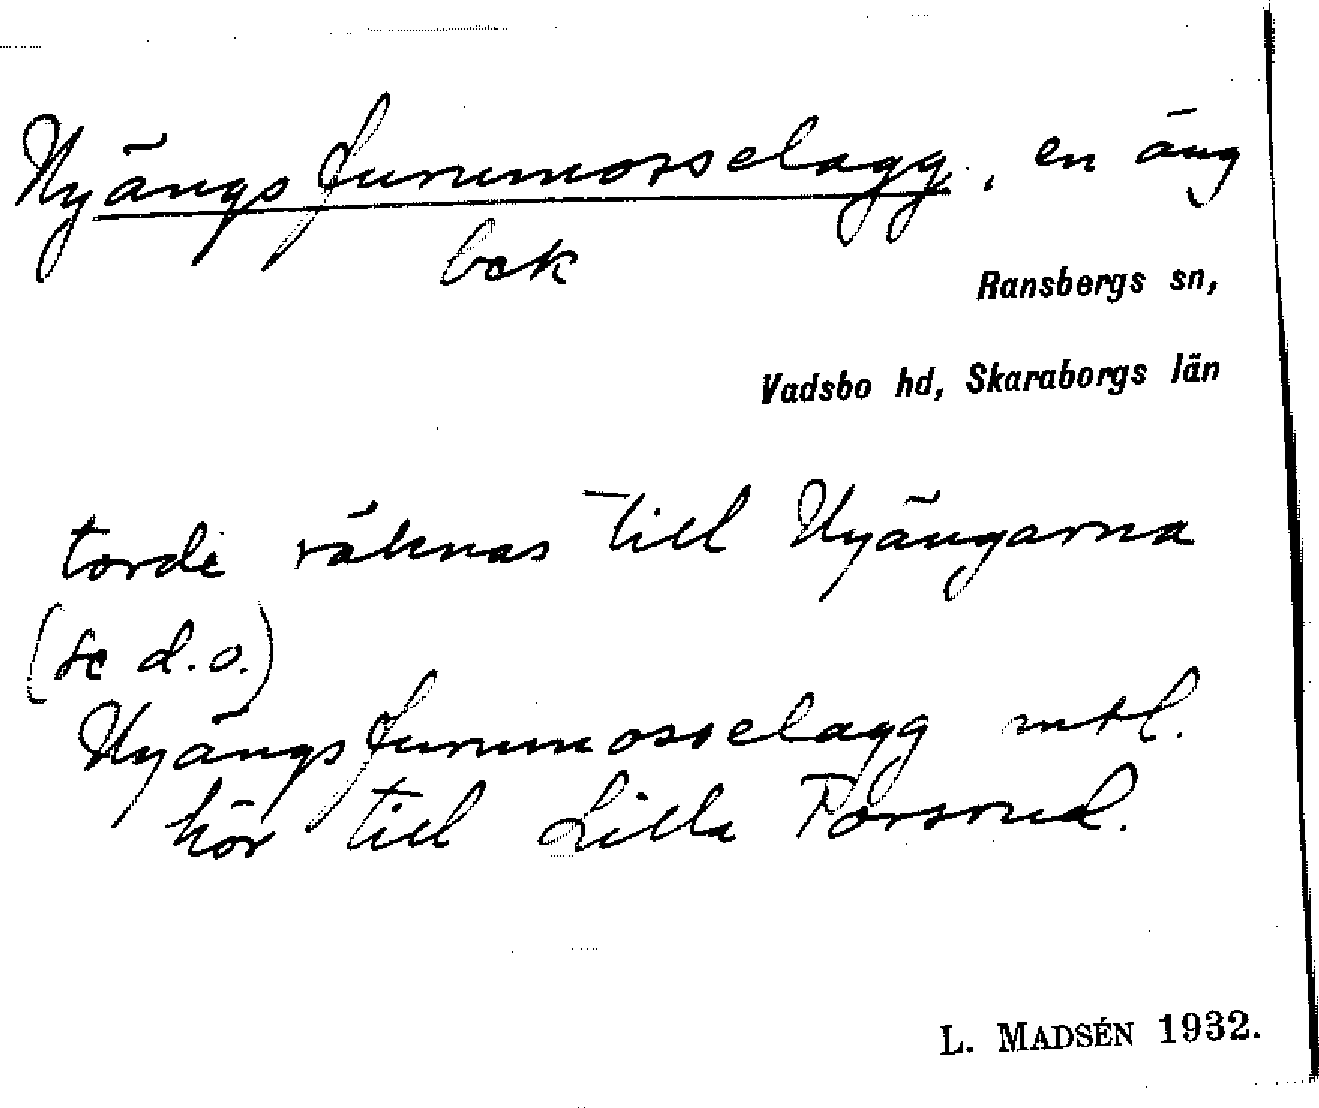 Nyängsfurumosselagg, en äng
bek
Ransbergs sn,
Vadsbo hd, Skaraborgs län
torde räknas till Nyängarna
(se d.o.)
Nyängsfurumosselagg mtl.
hör till Lilla Porsrud.
L. MADSÉN 1932.